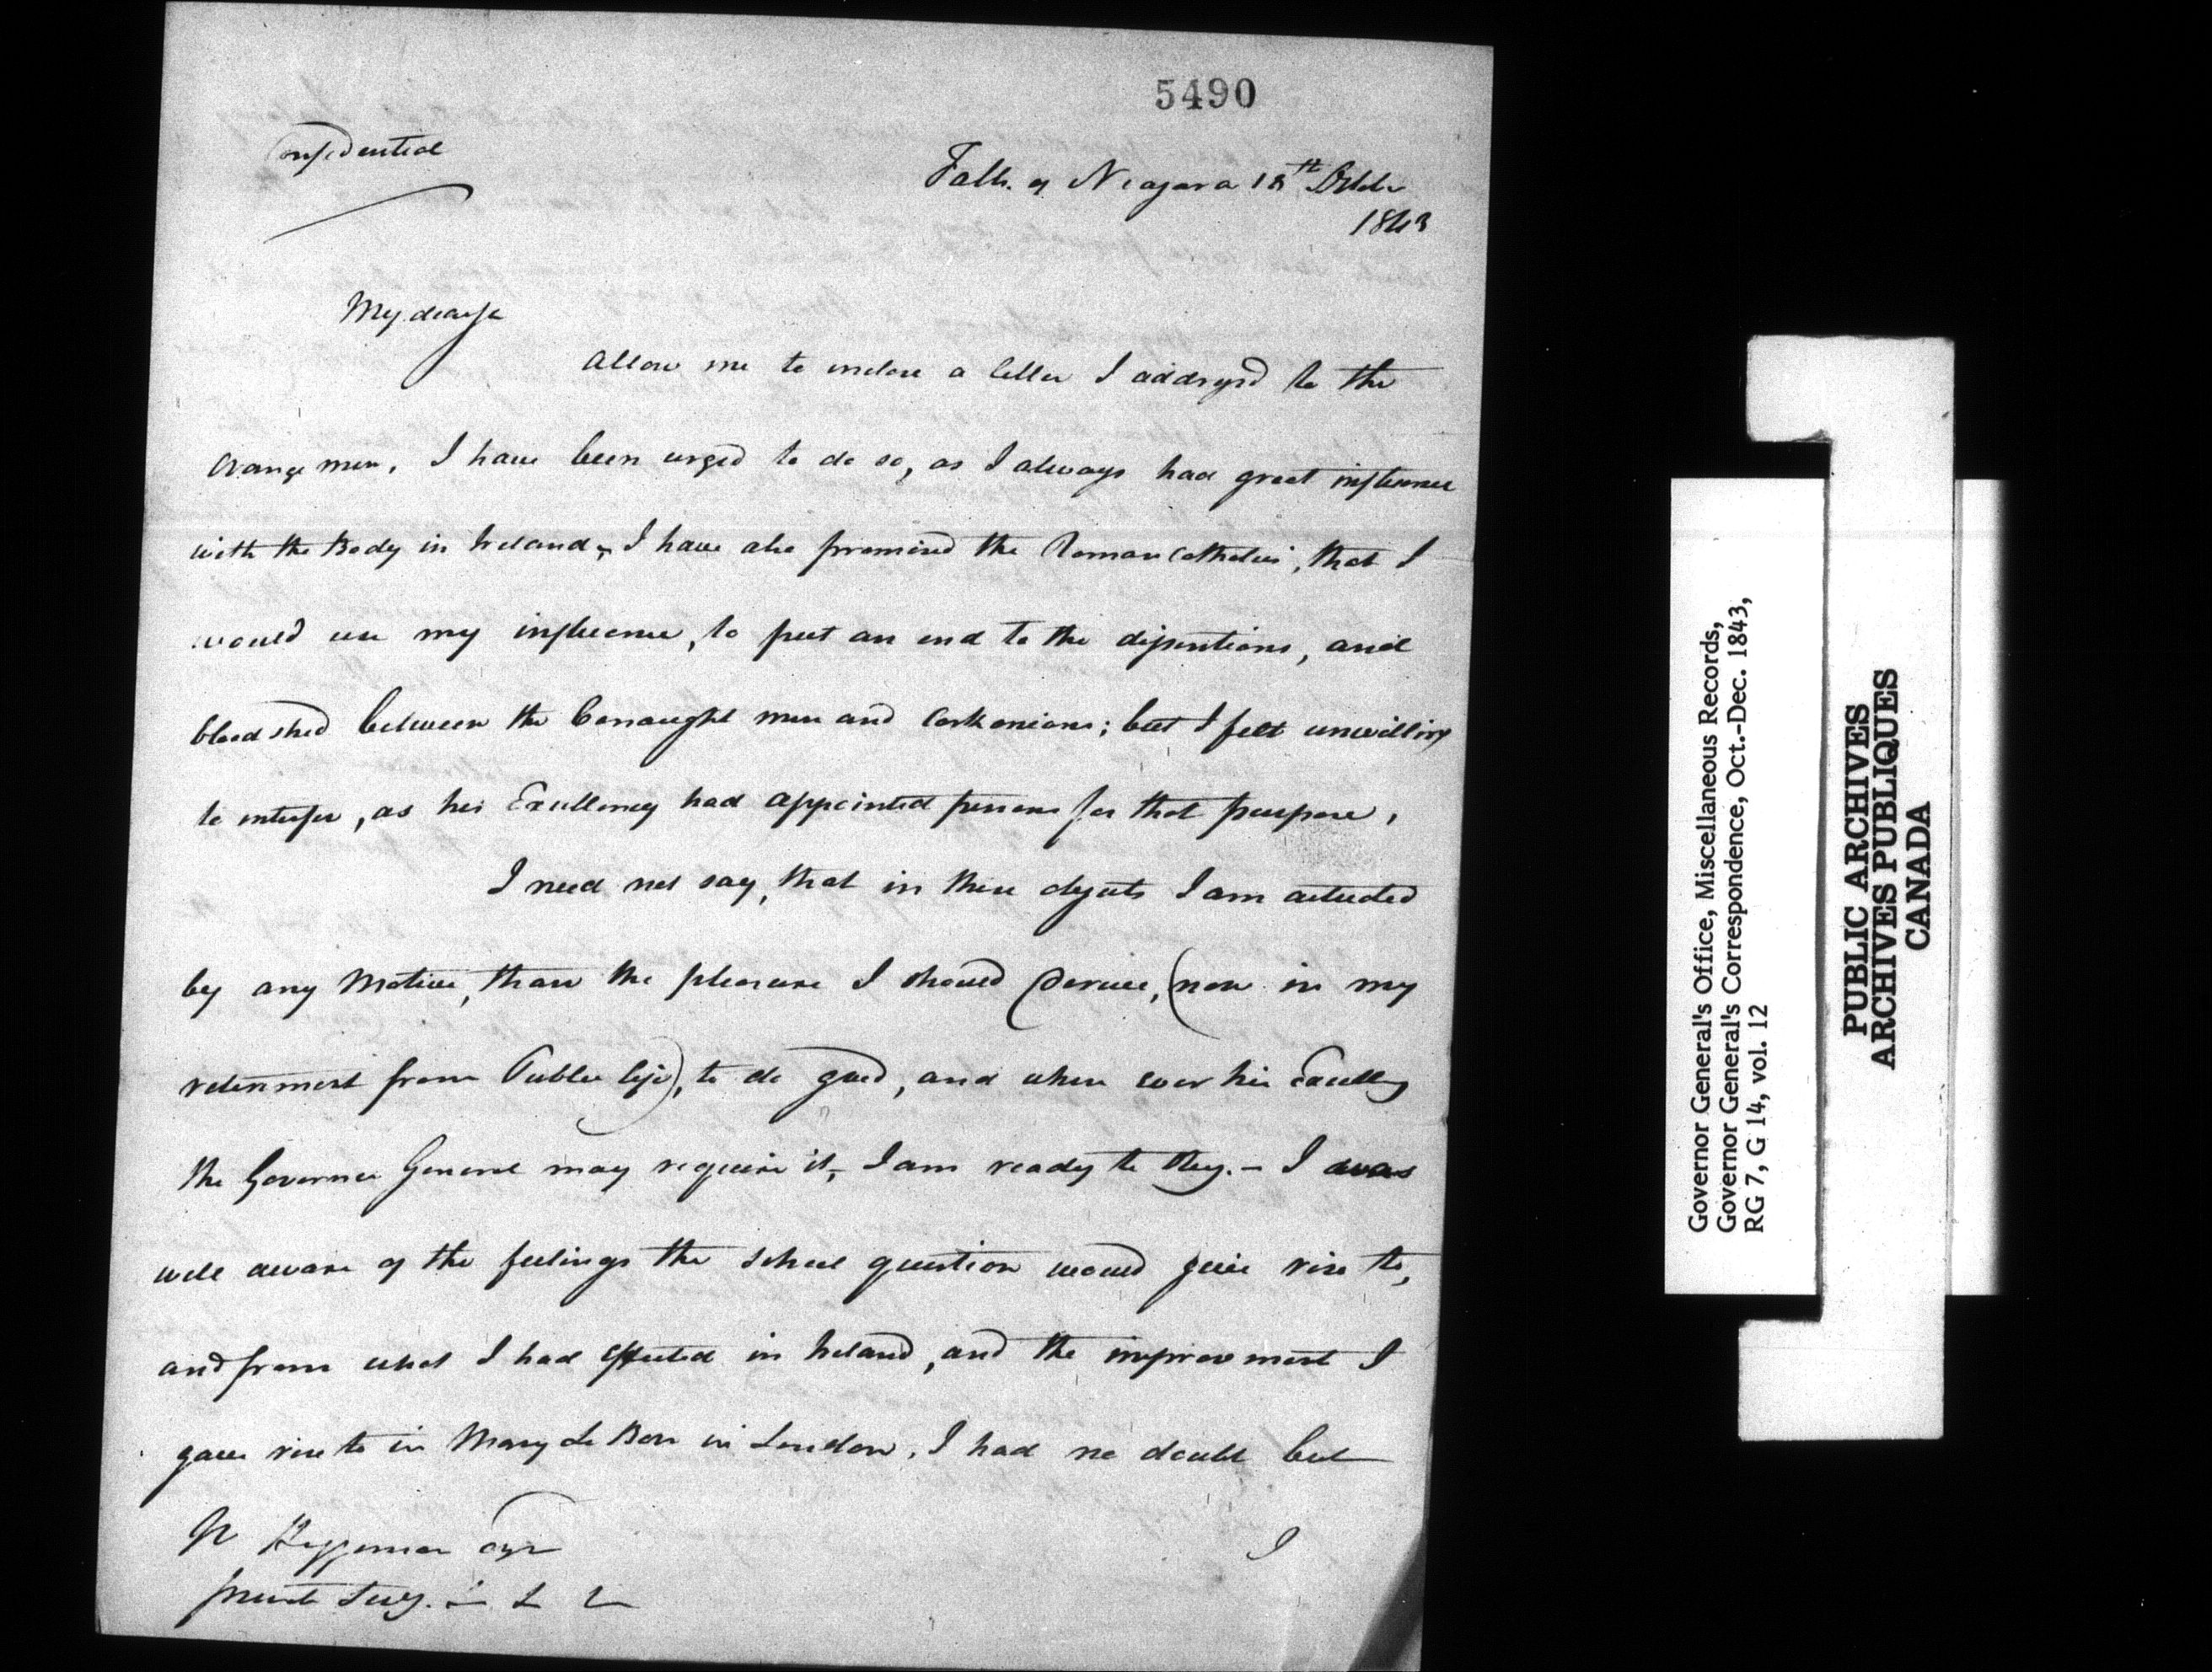 5490
Confidential
Falls of Niagara 18th Octbr
1843
My dear Sir
Allow me to inclose a letter I addressed to the
Orange men. I have been urged to do so, as I always had great influence
with the Body in Ireland, I have also promised the Roman Catholics, that I
would use my influence, to put an end to the dissentions, and
bloodshed between the Conaught men and Corkonians; but I felt unwilling
to interfer, as his Excellency had appointed persons for that purpose.
I need not say, that in these objects I am actuated
by any Motive, than the pleasure I should derive, (now in my
retirement from Public life), to do good, and when ever his Excellency
the Governor General may require it, I am ready to obey. – I was
well aware of the feelings the school question would give rise to,
and from what I had effected in Ireland, and the improvement I
gave rise to in Mary Le Bon in London. I had no doubt but
I
Esqr
Private Secy.
Governor General's Office, Miscellaneous Records,
Governor General's Correspondence, Oct.-Dec. 1843,
RG 7, G 14, vol. 12
PUBLIC ARCHIVES
ARCHIVES PUBLIQUES
CANADA